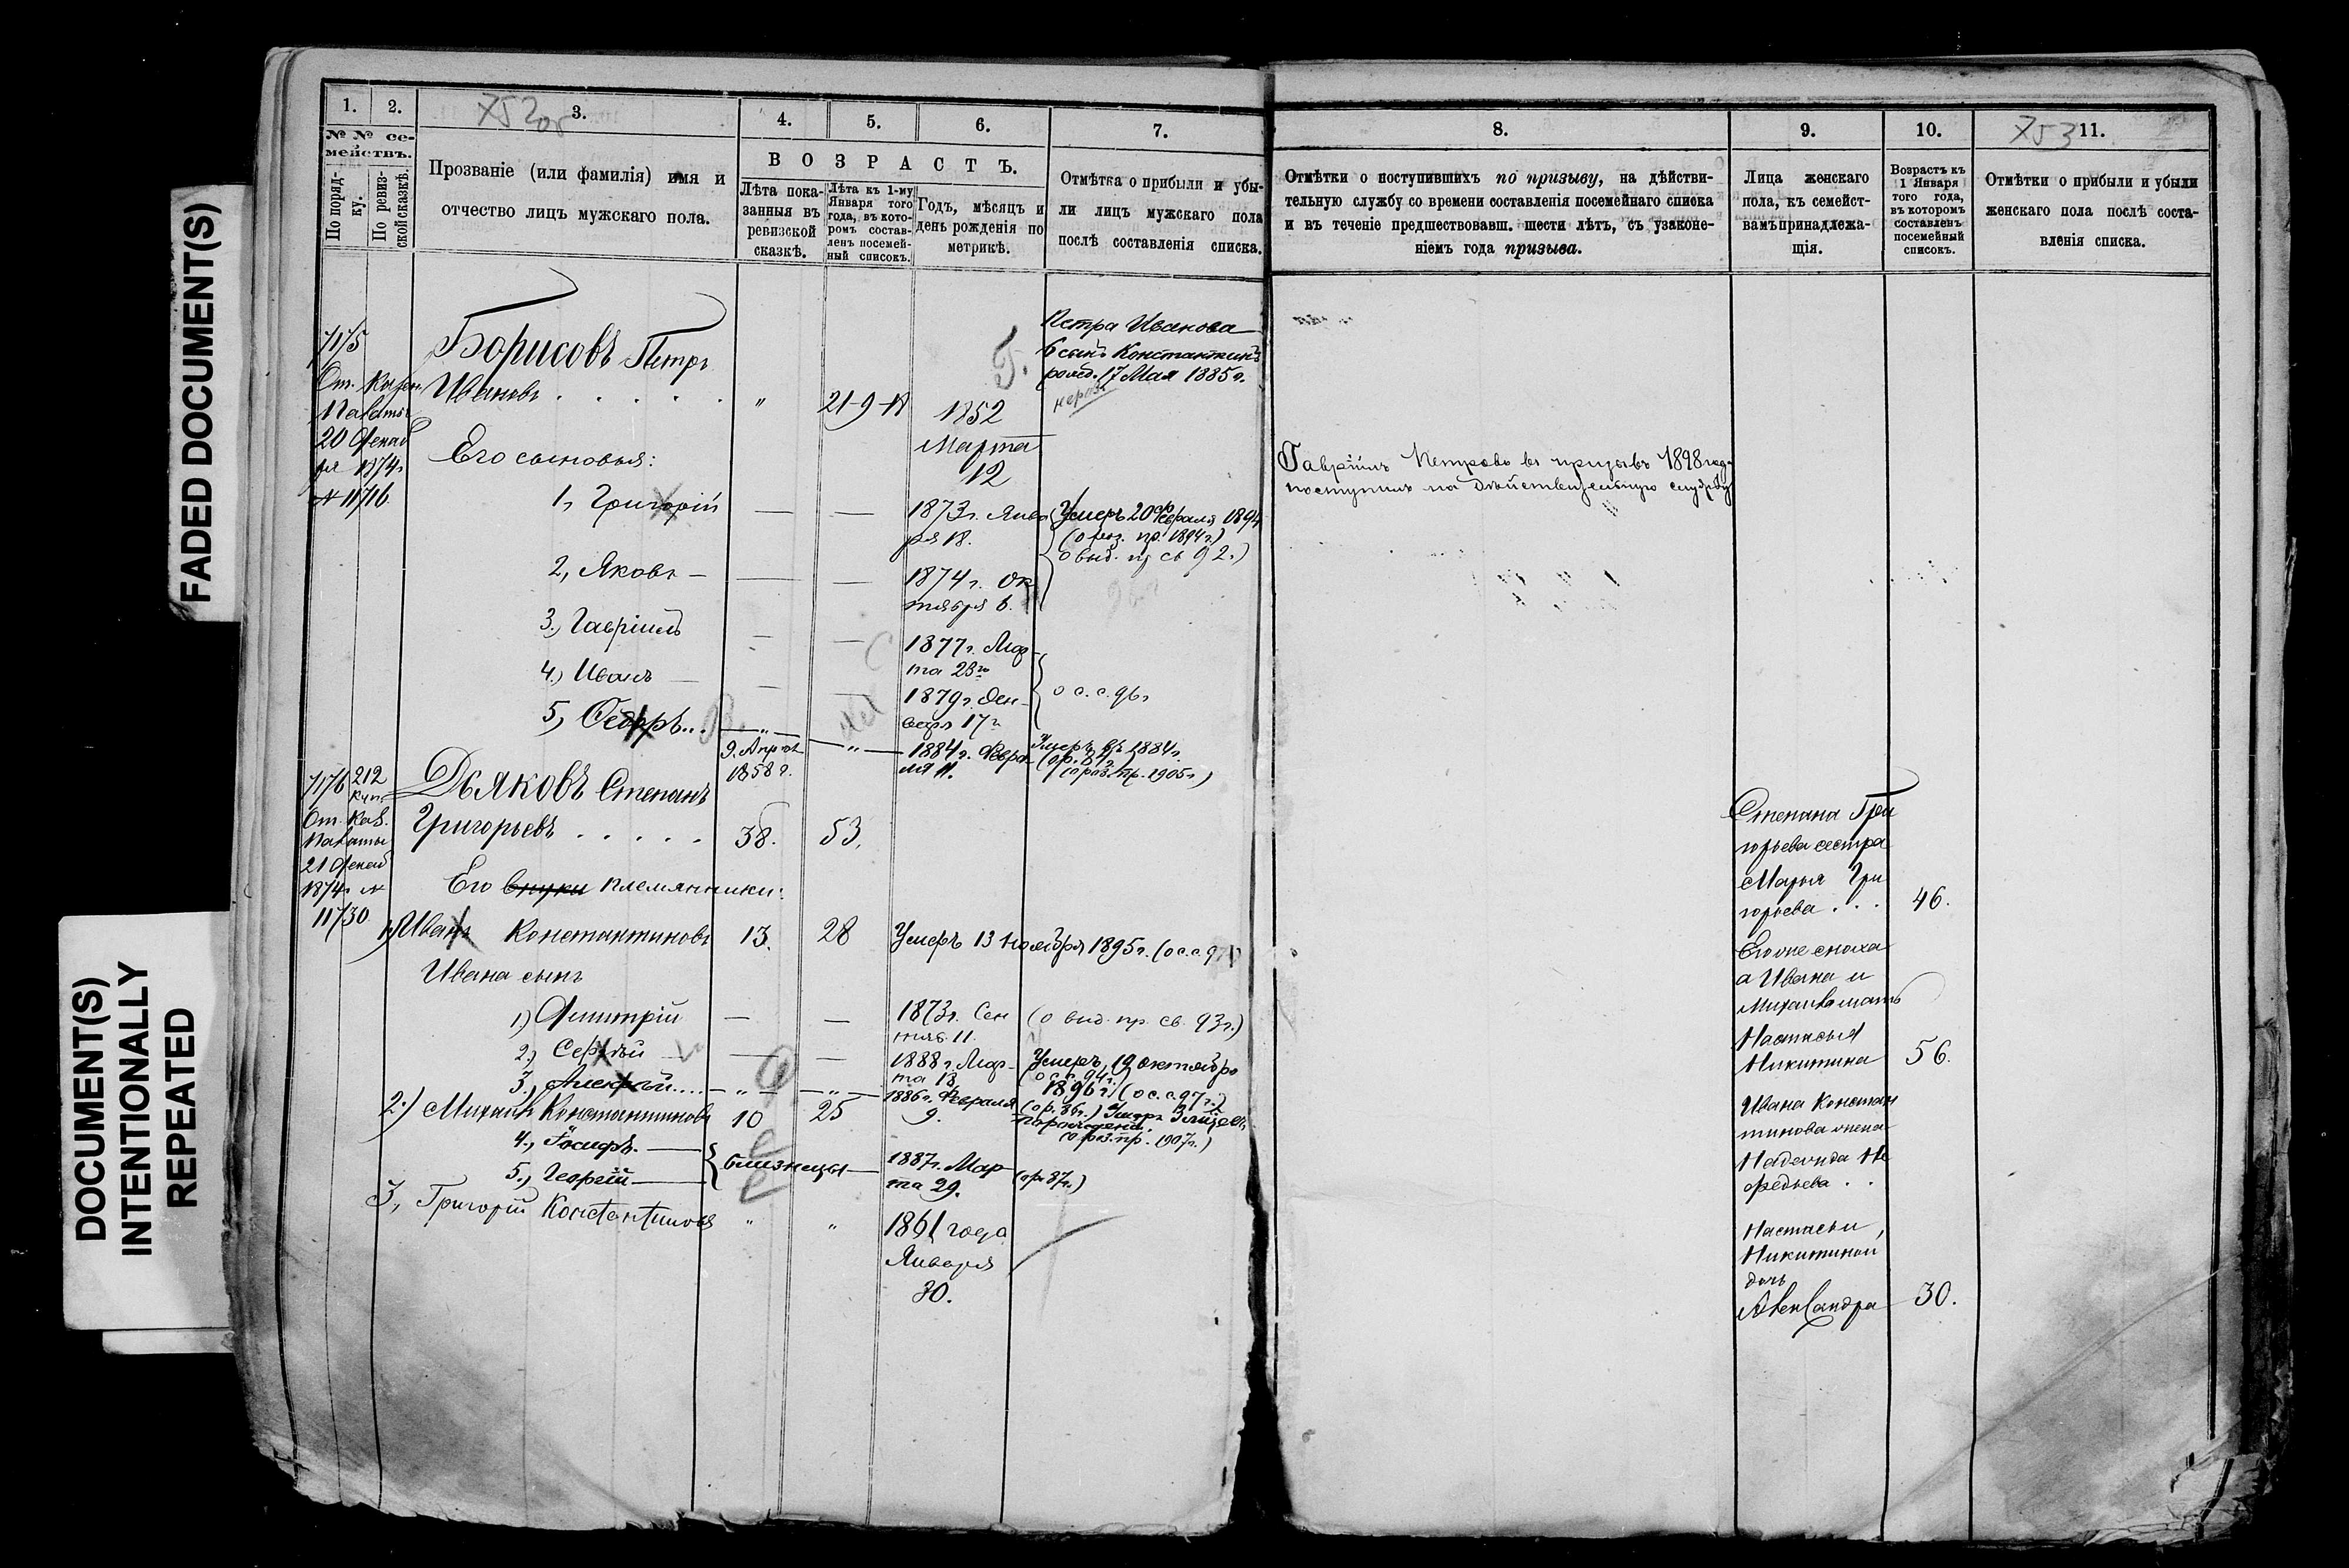 FADED DOCUMENT(S)
DOCUMENT(S)
INTENTIONALLY
REPEATED
1.
2.
3.
4.
5.
6.
7.
№ № се-
мействъ.
По поряд-
ку.
По ревиз-
ской сказкѣ.
Прозваніе (или фамилія) имя и
отчество лицъ мужскаго пола.
ВОЗРАСТЪ.
Лѣта пока-
занныя въ
ревизской
сказкѣ.
Лѣта къ 1-му
Января того
года, въ кото-
ромъ состав-
ленъ посемей-
ный списокъ.
Годъ, мѣсяцъ и
день рожденія по
метрикѣ.
Отмѣтка о прибыли и убы-
ли лицъ мужскаго пола
послѣ составленія списка.
715
Борисовъ Петръ
Ивановъ . . . . .
"
21-9-18
1852
Марта
12
Петра Иванова
6 сынъ Константинъ
рожд. 17 Мая 1885 г.
20 Декаб
ря 1874 г
№ 11716
Его сыновья:
1, Григорій
1873 г. Янва
ря 18.
Умеръ 20 февраля 1894
2, Яковъ
1874 г. Ок
тября 6.
3.) Гавріилъ
1877 г. Мар-
та 23го
4.) Иванъ
1879 г. Ден-
17 г
о с. с. 96 г
5, Ѳедоръ...
1884 г. Февра-
ля 11.
Умеръ въ 1884 г.
(о роз. пр. 1905 г.)
716
212
9. Апр
1858 г.
Дьяковъ Степанъ
Григорьевъ . . . . .
38.
53.
21 Декаб
1874 г №
11730
Его внуки племянники:
1) Иванъ Константиновъ
13.
28
Умеръ 13 Ноября 1895 г. (о с. с. 97
Ивана сынъ
1.) Димитрій
1873 г. Сен
тяб. 11.
(о выд. пр. св. 93 г.)
2.) Сергѣй
1888 г. Мар-
та 18
Умеръ 19 октября
1896 г. (о с. с. 97 г.)
3, Алексѣй....
1886 г. Февраля
9.
2.) Михаилъ Константиновъ
10
25
(о роз. пр. 1907 г.)
4., Іосифъ.
5., Георгій
близнецы
1887 г. Мар
та 29.
(ор 87 г.)
3, Григорій Константиновъ
"
"
1861 года
Января
30.
8.
9.
10.
11.
Отмѣтки о поступившихъ по призыву, на дѣйстви-
тельную службу со времени составленія посемейнаго списка
и въ теченіе предшествовавш. шести лѣтъ, съ узаконе-
ніемъ года призыва.
Лица женскаго
пола, къ семейст-
вамъ принадлежа-
щія.
Возрастъ къ
1 Января
того года,
въ которомъ
составленъ
посемейный
списокъ.
Отмѣтки о прибыли и убыли
женскаго пола послѣ соста-
вленія списка.
753
Гавріилъ Петровъ въ призывъ 1898 году
поступилъ на дѣйствительную службу
Степана Гри
горьева сестра
Марья Гри
горьева . . .
46.
Его же сноха
а Ивана и
Михаила мать
Настасья
Никитина
56.
Ивана Констан
тинова жена
Надежда Не
федьева . .
Настасьи
Никитиной
дочь
Александра
30.